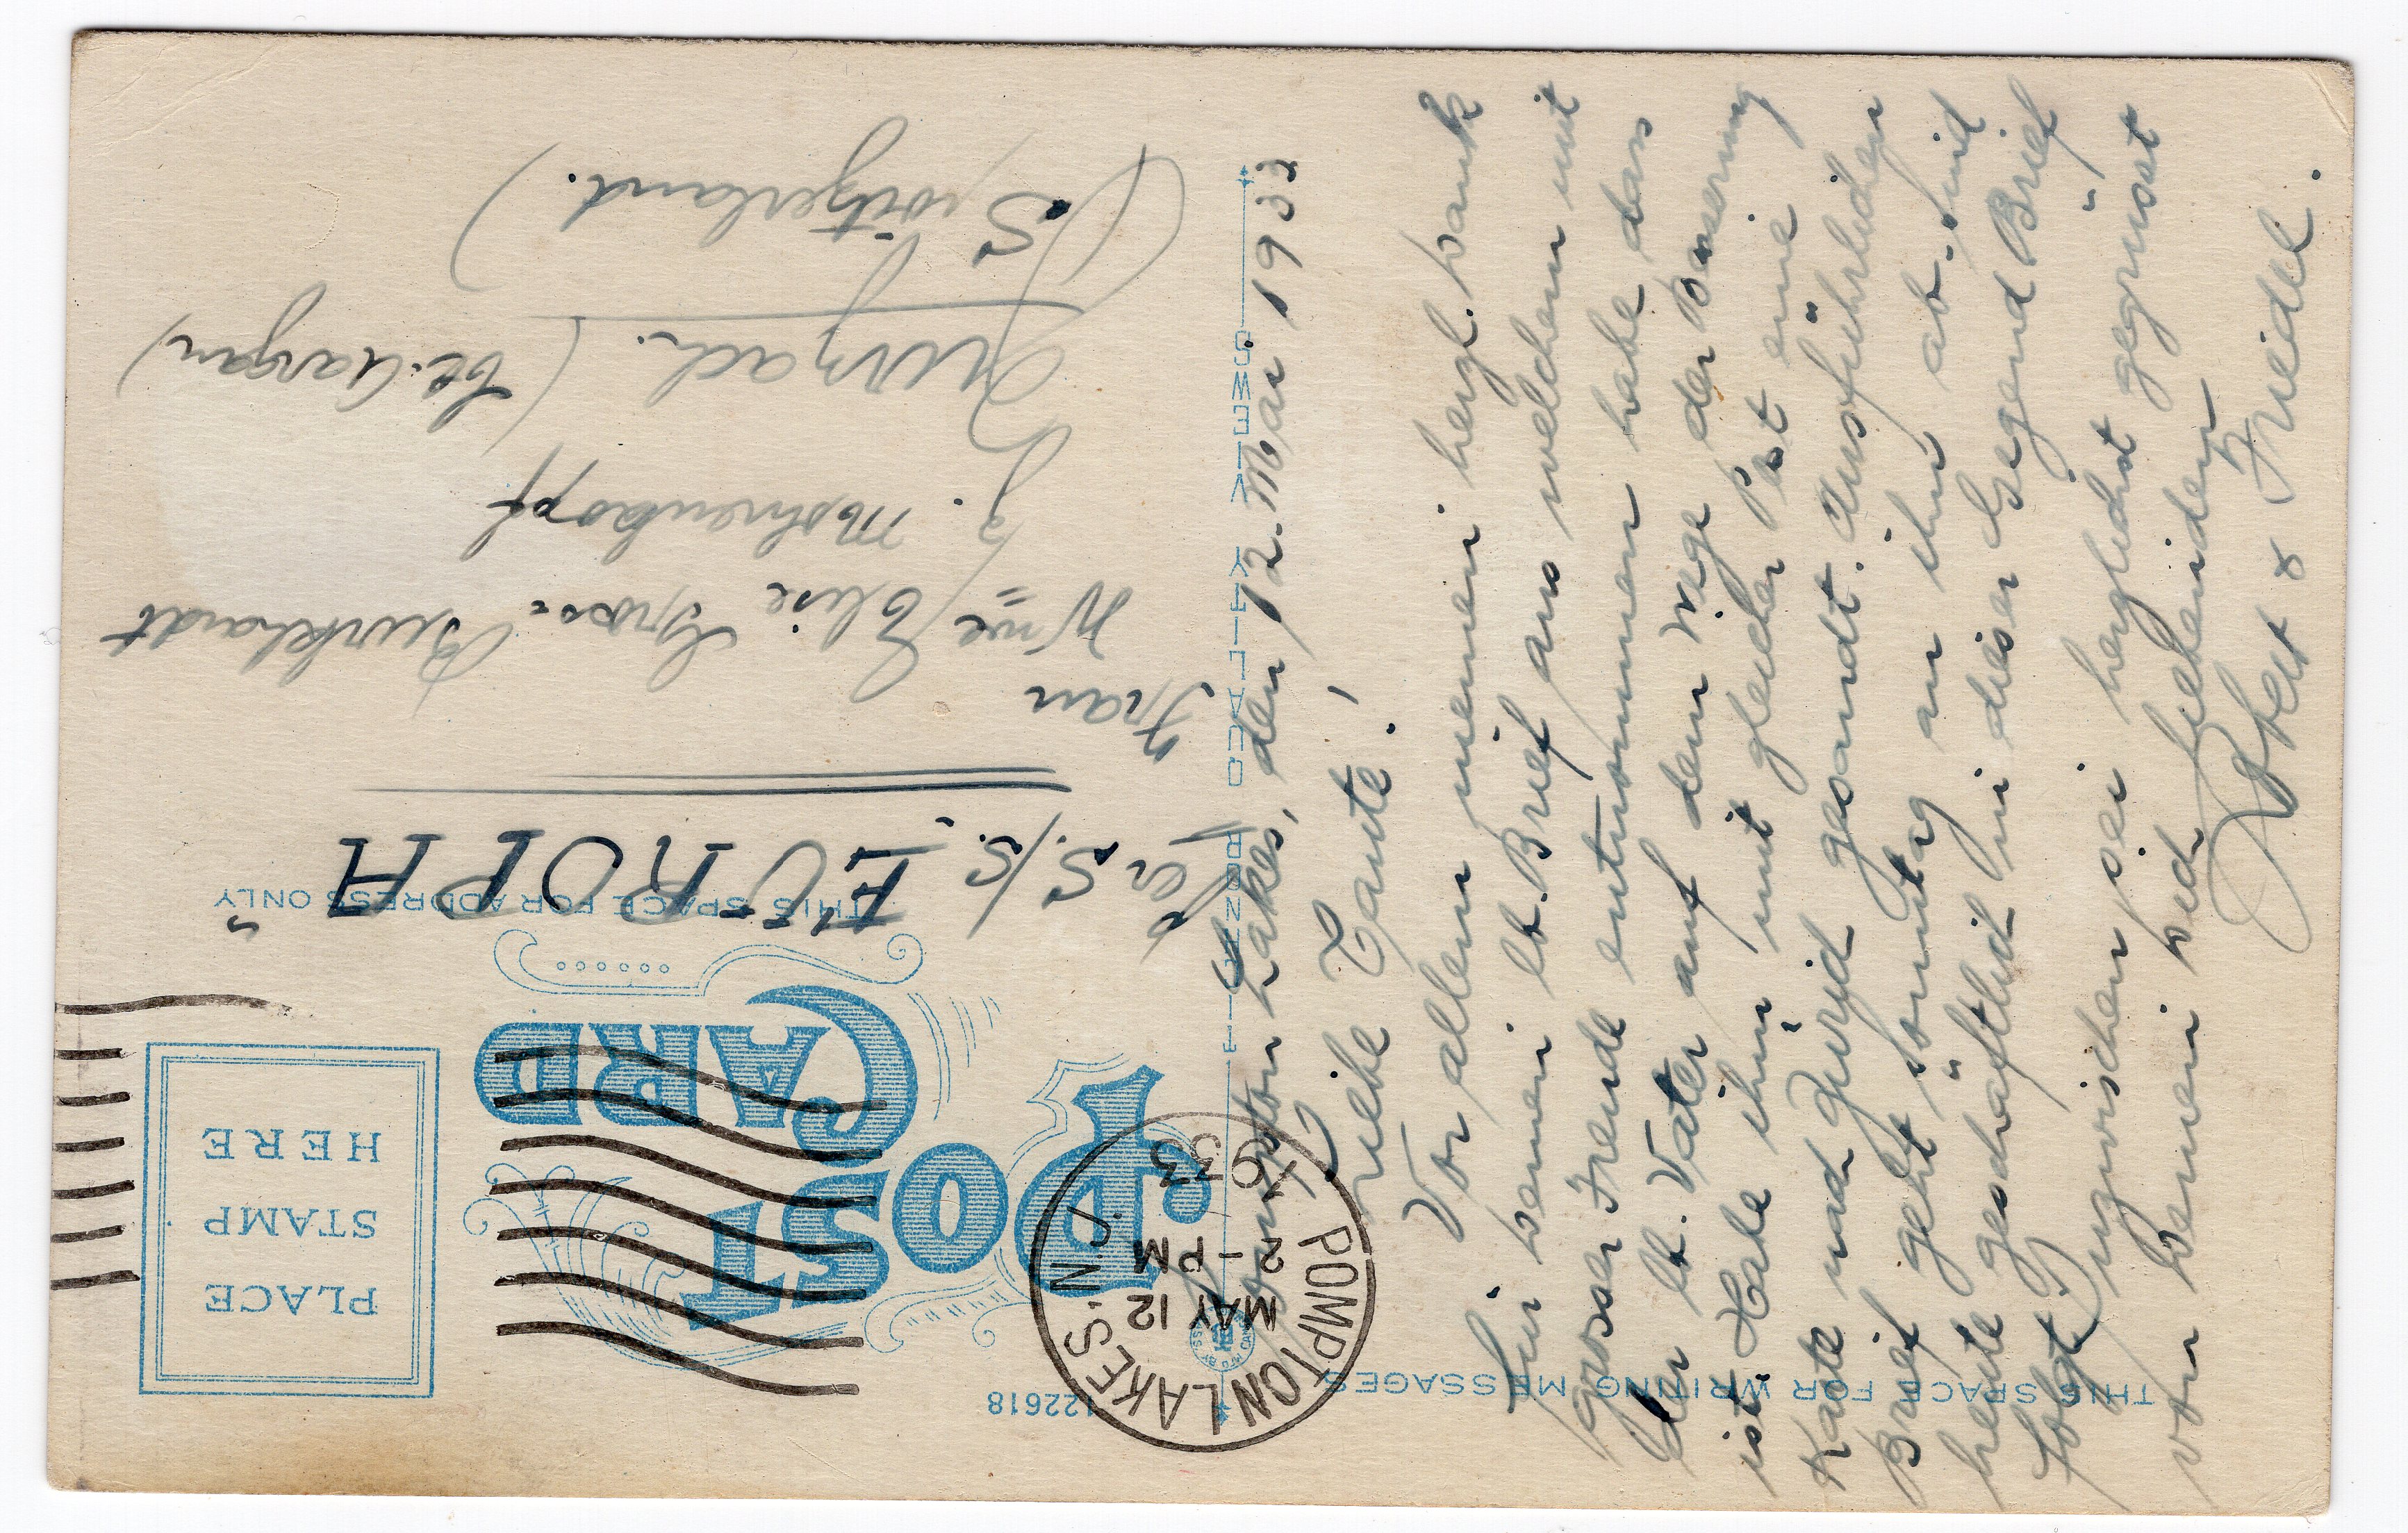 THIS SPACE FOR WRITING MESSAGES
Pompton Lakes, den 12. Mai 1933
Liebe Tante!
Vor allem meinen herzl. Dank
für Deinen lb. Brief aus welchem mit
grosser Freude entnommen habe dass
der lb. Vater auf dem Wege der Besserung
ist. Habe ihm mit gleicher Post eine
Karte nach Zürich gesandt. Ausführlicher
Brief geht Sonntag an ihm ab. Sind
heute geschäftlich in dieser Gegend (Brief
folgt.) Inzwischen sei herzlichst gegrüsst
von Deinen Dich liebenden
Robert & Friedel.
122618
POST
CARD
THIS SPACE FOR ADDRESS ONLY
PLACE
STAMP
HERE
POMPTON LAKES. N.J.
MAY 12
2 - PM
1933
Per S./S. "EUROPA"
Frau
Wwe Elise Gross-Burkhardt
z. Mohrenkopf
Zurzach. (Kt. Aargau)
(Switzerland.)